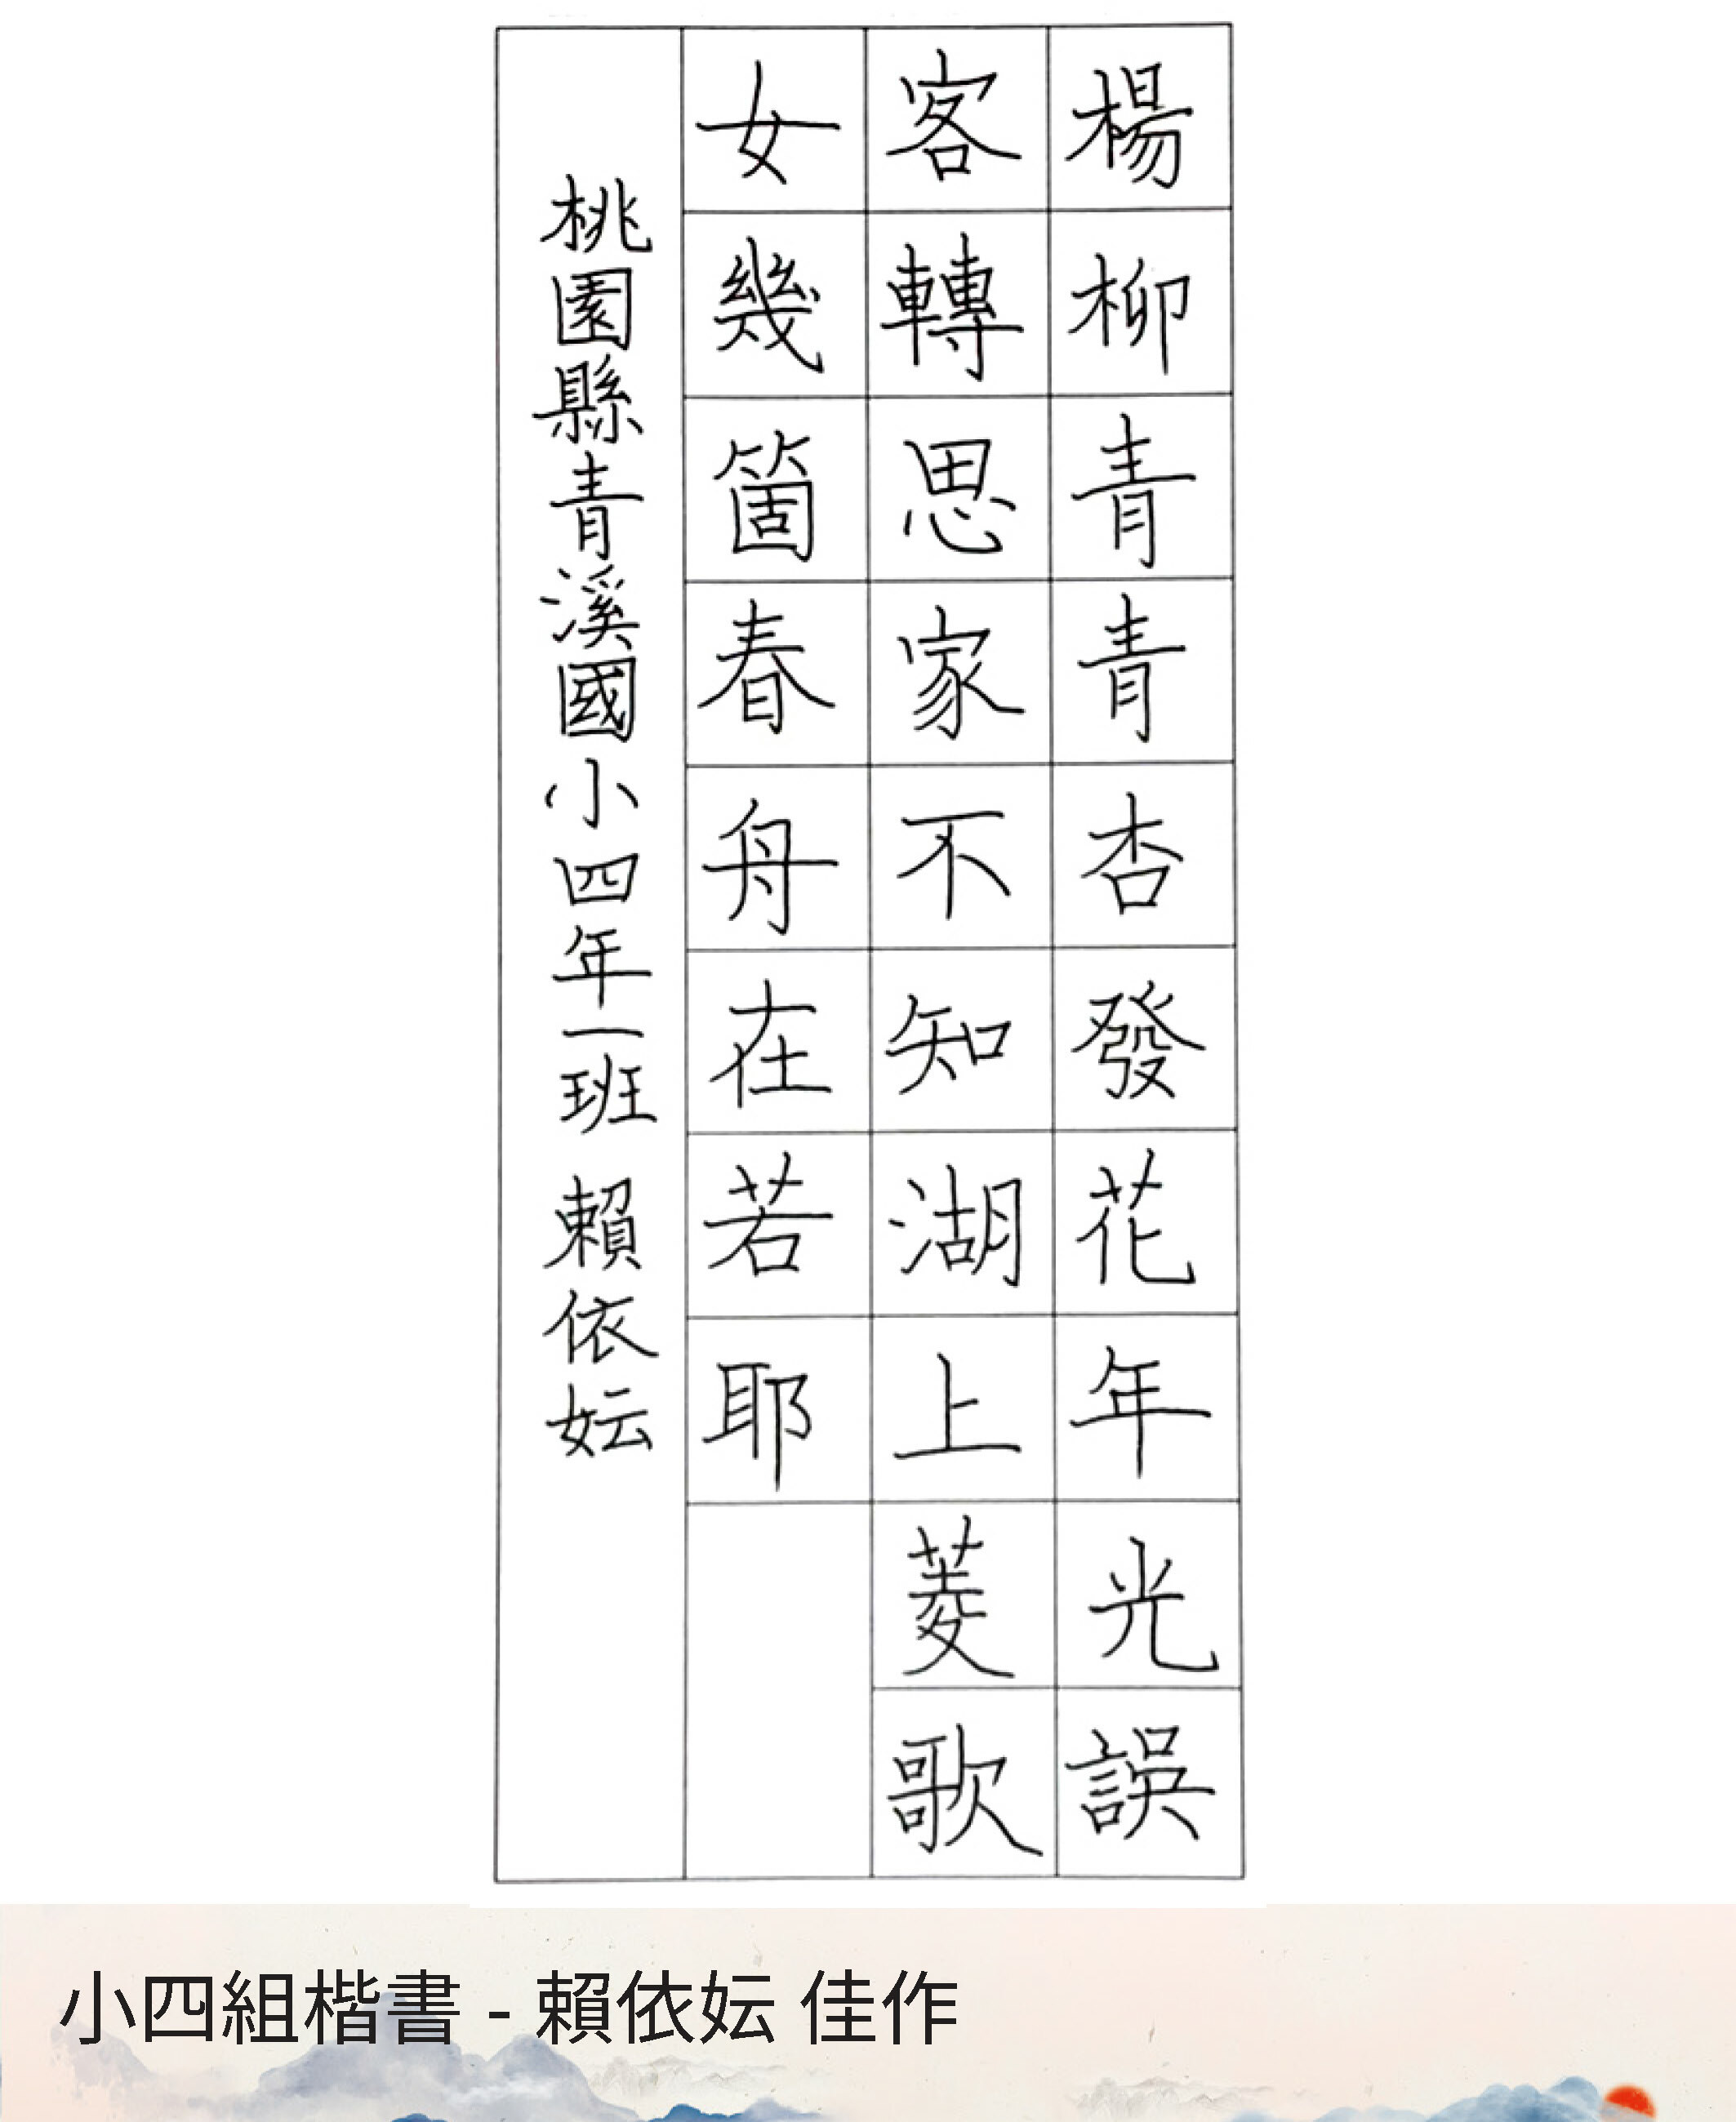 楊柳青青杏發花年光誤
客轉思家不知湖上菱歌
女幾箇春舟在若耶
桃園縣青溪國小四年一班 賴依妘
小四組楷書 - 賴依妘 佳作